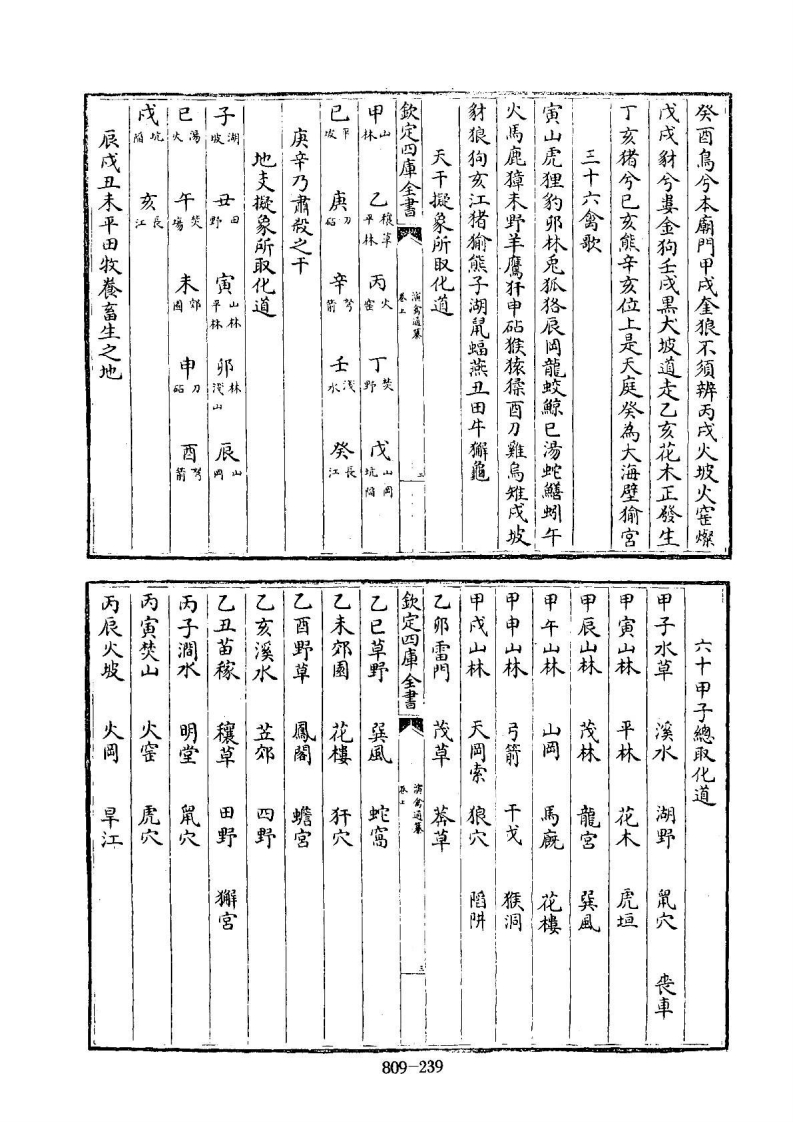 癸酉烏兮本廟門甲戌奎狼不須辨丙戌火坡火窑燦
戊戌豺兮婁金狗壬戌黒犬坡道走乙亥花木正發生
丁亥猪兮已亥熊辛亥位上是天庭癸為大海壁㺄宮
三十六禽歌
寅山虎狸豹卯林兎狐狢辰岡龍蛟鯨巳湯蛇鱔蚓午
火馬鹿獐未野羊鷹犴申砧猴猿猱酉刀雞烏雉戌坡
豺狼狗亥江猪㺄熊子湖鼠蝠燕丑田牛獬龜
天干擬象所取化道
欽定四庫全書 演禽通纂 卷上 三
甲 山林 乙 穰草平林 丙 火窑 丁 焚野 戊 山岡坑陷
已 下坂 庚 刀砧 辛 弩箭 壬 淺水 癸 長江
庚辛乃肅殺之干
地支擬象所取化道
子 湖坡 丑 田野 寅 山林平林 卯 林淺山 辰 山岡
巳 湯火 午 焚場 未 郊園 申 刀砧 酉 弩箭
戌 坑陷 亥 長江
辰戌丑未平田牧養畜生之地
六十甲子總取化道
甲子水草 溪水 湖野 鼠穴 喪車
甲寅山林 平林 花木 虎垣
甲辰山林 茂林 龍宮 巽風
甲午山林 山岡 馬廐 花樓
甲申山林 弓箭 干戈 猴洞
甲戌山林 天岡索 狼穴 陷阱
乙卯雷門 茂草 莽草
欽定四庫全書 演禽通纂 卷上 三
乙巳草野 巽風 蛇窩
乙未郊園 花樓 犴穴
乙酉野草 鳳閣 蟾宮
乙亥溪水 苙郊 四野
乙丑苗稼 穰草 田野 獬宮
丙子澗水 明堂 鼠穴
丙寅焚山 火窑 虎穴
丙辰火坡 火岡 旱江
809-239